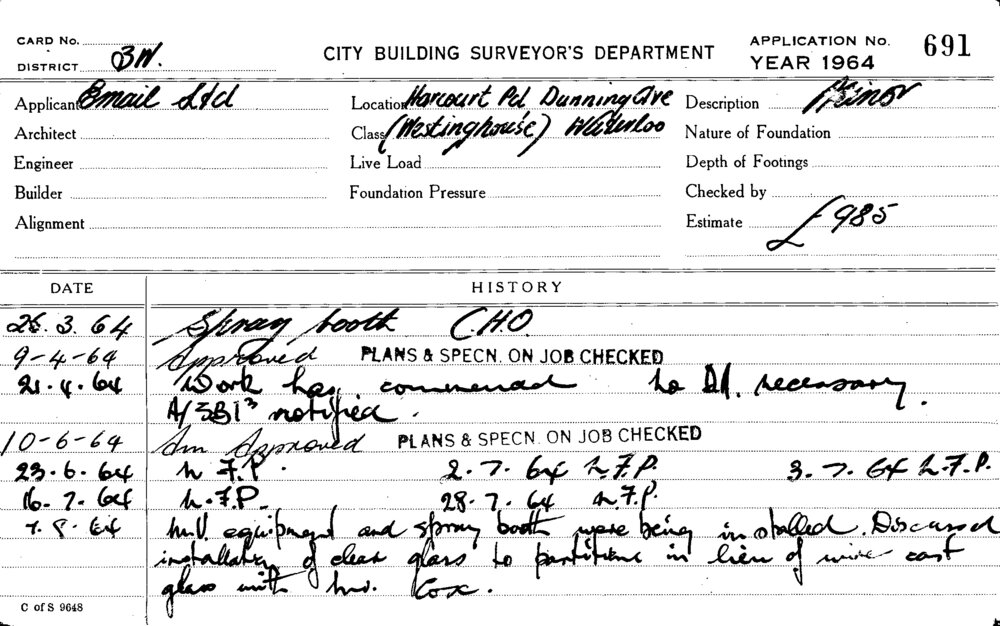 CARD No.
DISTRICT 3W.
CITY BUILDING SURVEYOR'S DEPARTMENT
APPLICATION No. 691
YEAR 1964
Applicant Email Ltd
Location Harcourt Pd Dunning Ave
Description Minor
Architect
Class (Westinghouse) Waterloo
Nature of Foundation
Engineer
Live Load
Depth of Footings
Builder
Foundation Pressure
Checked by
Alignment
Estimate £985
DATE HISTORY
25.3.64 Spray booth C.H.O
9-4-64 Approved PLANS & SPECN. ON JOB CHECKED
21.4.64 Work has commenced no necessary.
notified.
10-6-64 Am Approved PLANS & SPECN. ON JOB CHECKED
23.6.64 N.F.P. 2.7.64 N.F.P. 3.7.64 N.F.P.
16.7.64 N.F.P. 28.7.64 N.F.P.
7.8.64 equipment and spray booth were being installed. Discussed
installation of clear glass to partitions in lieu of wire cast
glass with Mr. Cox.
C of S 9648